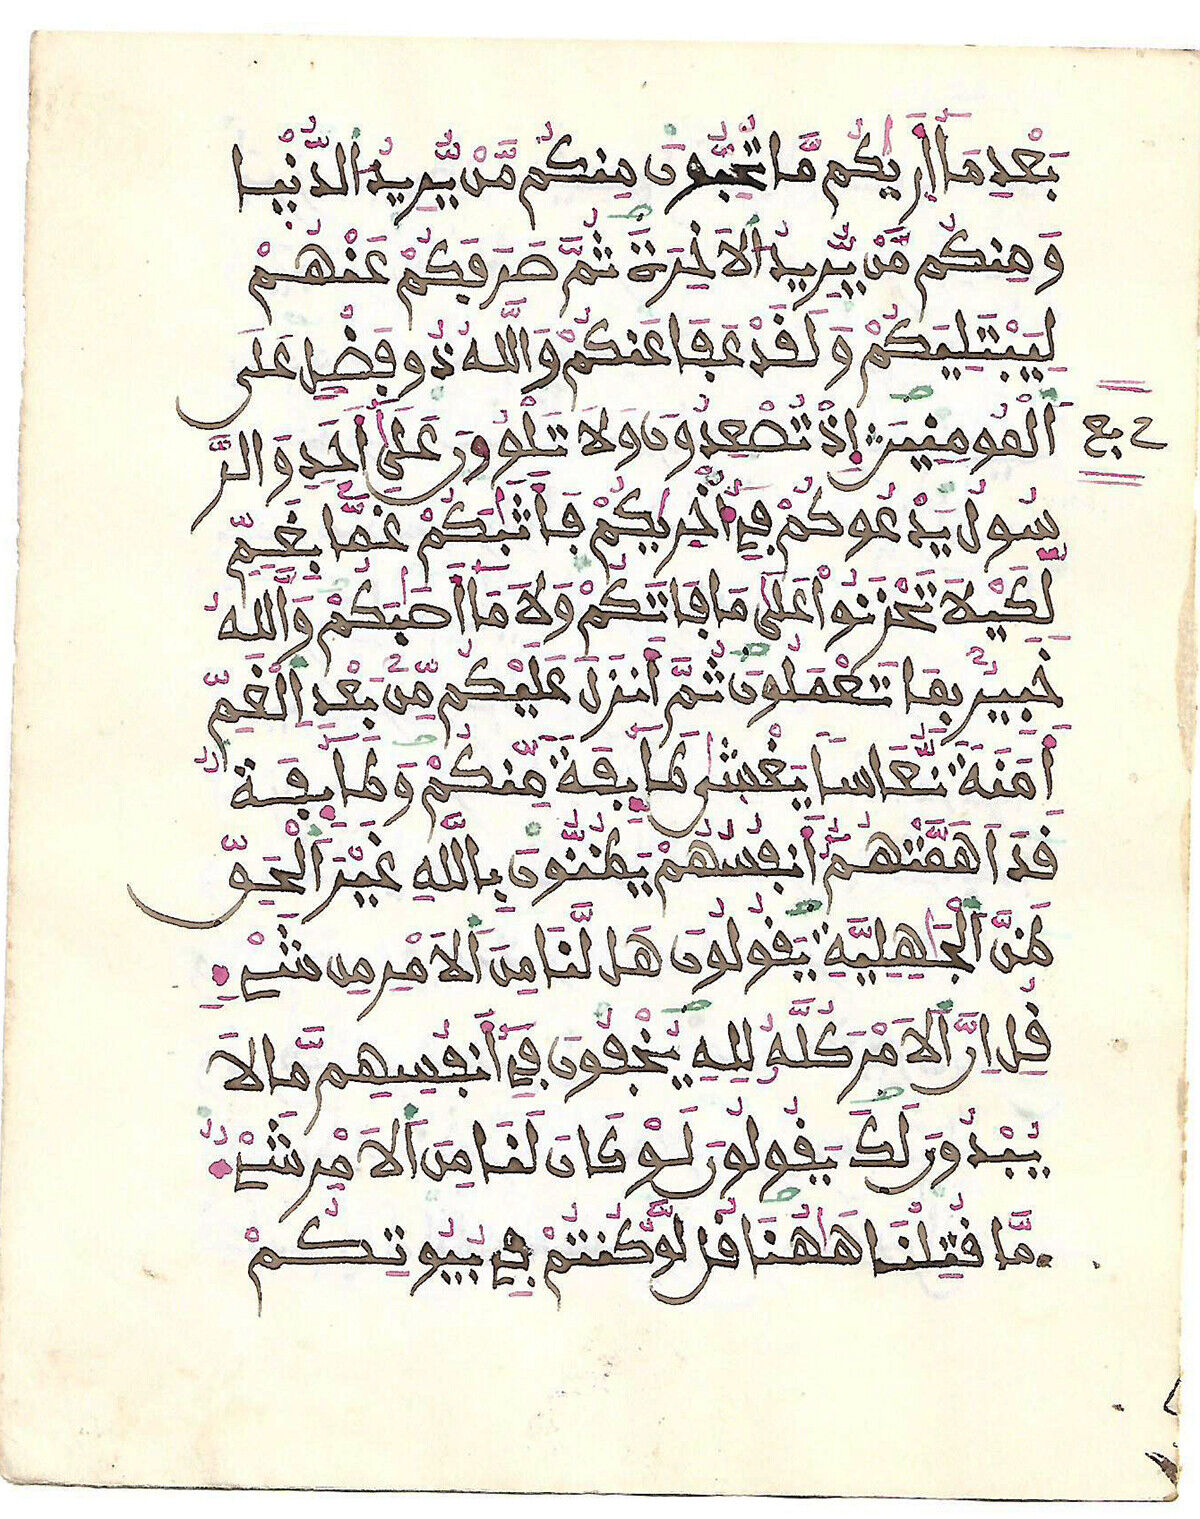 بَعْدِ مَا أَرٜيٰكُم مَّا تُحِبُّونَ مِنكُم مَّنْ يُّرِيدُ الدُّنْيٜا
وَمِنكُم مَّنْ يُّرِيدُ الَاخِرَةَ ثُمَّ صَرَفَكُمْ عَنْهُمْ
لِيَبْتَلِيَكُمْ وَلَقَدْ عَفَا عَنكُمْ وَاللَّهُ ذُو فَضْلٍ عَلَى
الْمُومِنِينَ إِذْ تُصْعِدُونَ وَلَا تَلْوُۥنَ عَلَىٰ أَحَدٍ وَالرَّ
سُولُ يَدْعُوكُمْ فِي أُخْرٜيٰكُمْ فَأَثَٰبَكُمْ غَمّاً بِغَمٍّ
لِّكَيْلَا تَحْزَنُواْ عَلَىٰ مَا فَاتَكُمْ وَلَا مَا أَصَٰبَكُمْ وَاللَّهُ
خَبِيرٌ بِمَا تَعْمَلُونَ ثُمَّ أَنزَلَ عَلَيْكُم مِّنۢ بَعْدِ الْغَمِّ
أَمَنَةً نُّعَاساً يَغْشٜىٰ طَآئِفَةً مِّنكُمْ وَطَآئِفَةٌ
قَدَ اهَمَّتْهُمُۥ أَنفُسُهُمْ يَظُنُّونَ بِاللَّهِ غَيْرَ الْحَقِّ
ظَنَّ الْجَٰهِلِيَّةِ يَقُولُونَ هَل لَّنَا مِنَ الَامْرِ مِن شَيْءٍ
قُلِ انَّ الَامْرَ كُلَّهُۥ لِلهِ يُخْفُونَ فِي أَنفُسِهِم مَّا لَا
يُبْدُونَ لَكَ يَقُولُونَ لَوْ كَانَ لَنَا مِنَ الَامْرِ شَيْءٌ
مَّا قُتِلْنَا هَٰهُنَا قُل لَّوْ كُنتُمْ فِي بُيُوتِكُمْ